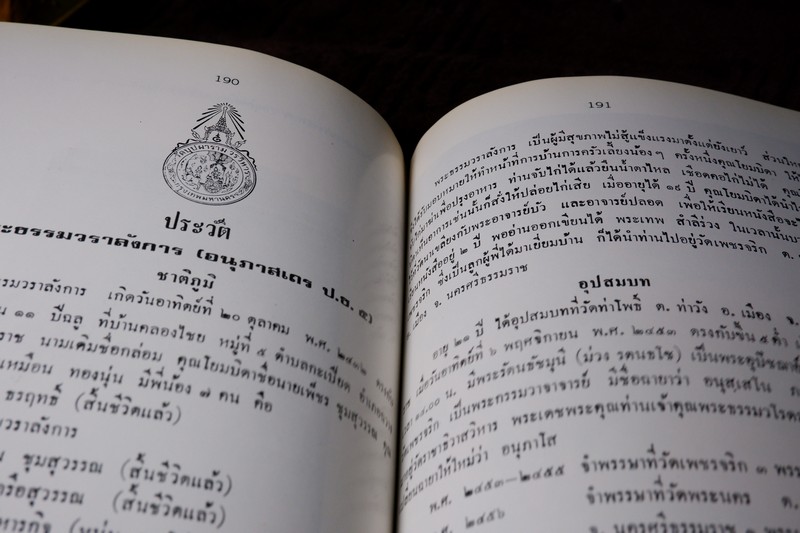 190
ประวัติ
ะธรรมวราลังการ (อนุภาสเถร ป.ธ. ๕)
ชาติภูมิ
รรมวราลังการ เกิดวันอาทิตย์ที่ ๒๐ ตุลาคม พ.ศ. ๒๔๓๒
น ๑๑ ปีฉลู ที่บ้านคลองไชย หมู่ที่ ๕ ตำบลกะเปียด อำเภอ
ราช นามเดิมชื่อกล่อม คุณโยมบิดาชื่อนายเพ็ชร ชุมสุวรรณ
เหมือน ทองนุ่น มีพี่น้อง ๗ คน คือ
ธรฤทธิ์ (สิ้นชีวิตแล้ว)
มวราลังการ
ชุมสุวรรณ (สิ้นชีวิตแล้ว)
รือสุวรรณ (สิ้นชีวิตแล้ว)
191
พระธรรมวราลังการ เป็นผู้มีสุขภาพไม่สู้แข็งแรงมาตั้งแต่ยังเยาว์ ส่วนใหญ่
มอบหมายให้ทำหน้าที่การบ้านการครัวเลี้ยงน้องๆ ครั้งหนึ่งคุณโยมบิดา
เพื่อปรุงอาหาร ท่านจับไก่ได้แล้วยืนน้ำตาไหล เชือดคอไก่ไม่ได้ คุณ
อาการเช่นนั้นก็สั่งให้ปล่อยไก่เสีย เมื่ออายุได้ ๑๙ ปี คุณโยมบิดาได้นำไป
วัดวนาเขลียงกับพระอาจารย์บัว และอาจารย์ปลอด เพื่อให้เรียนหนังสือ
หนังสืออยู่ ๒ ปี พออ่านออกเขียนได้ พระเทพ สำลีร่วง ในเวลานั้น
จริก ซึ่งเป็นลูกผู้พี่ได้มาเยี่ยมบ้าน ก็ได้นำท่านไปอยู่วัดเพชรจริก ต.
เมือง จ. นครศรีธรรมราช
อุปสมบท
อายุ ๒๑ ปี ได้อุปสมบทที่วัดท่าโพธิ์ ต. ท่าวัง อ. เมือง จ.
เมื่อวันอาทิตย์ที่ ๖ พฤศจิกายน พ.ศ. ๒๔๕๓ ตรงกับขึ้น ๕ ค่ำ
๑๔.๐๐ น. มีพระรัตนธัชมุนี (ม่วง รตนธโช) เป็นพระอุปัชฌาย์
เพชรจริก เป็นพระกรรมวาจาจารย์ มีชื่อฉายาว่า อนุสฺเสโน
อยู่วัดราชาธิวาสวิหาร พระเดชพระคุณท่านเจ้าคุณพระธรรมวโรดม
ฉายาให้ใหม่ว่า อนุภาโส
พ.ศ. ๒๔๕๓—๒๔๕๕ จำพรรษาที่วัดเพชรจริก ๓ พรร
๒๔๕๖ จำพรรษาที่วัดพระนคร ต.
จ. นครศรีธรรมราช